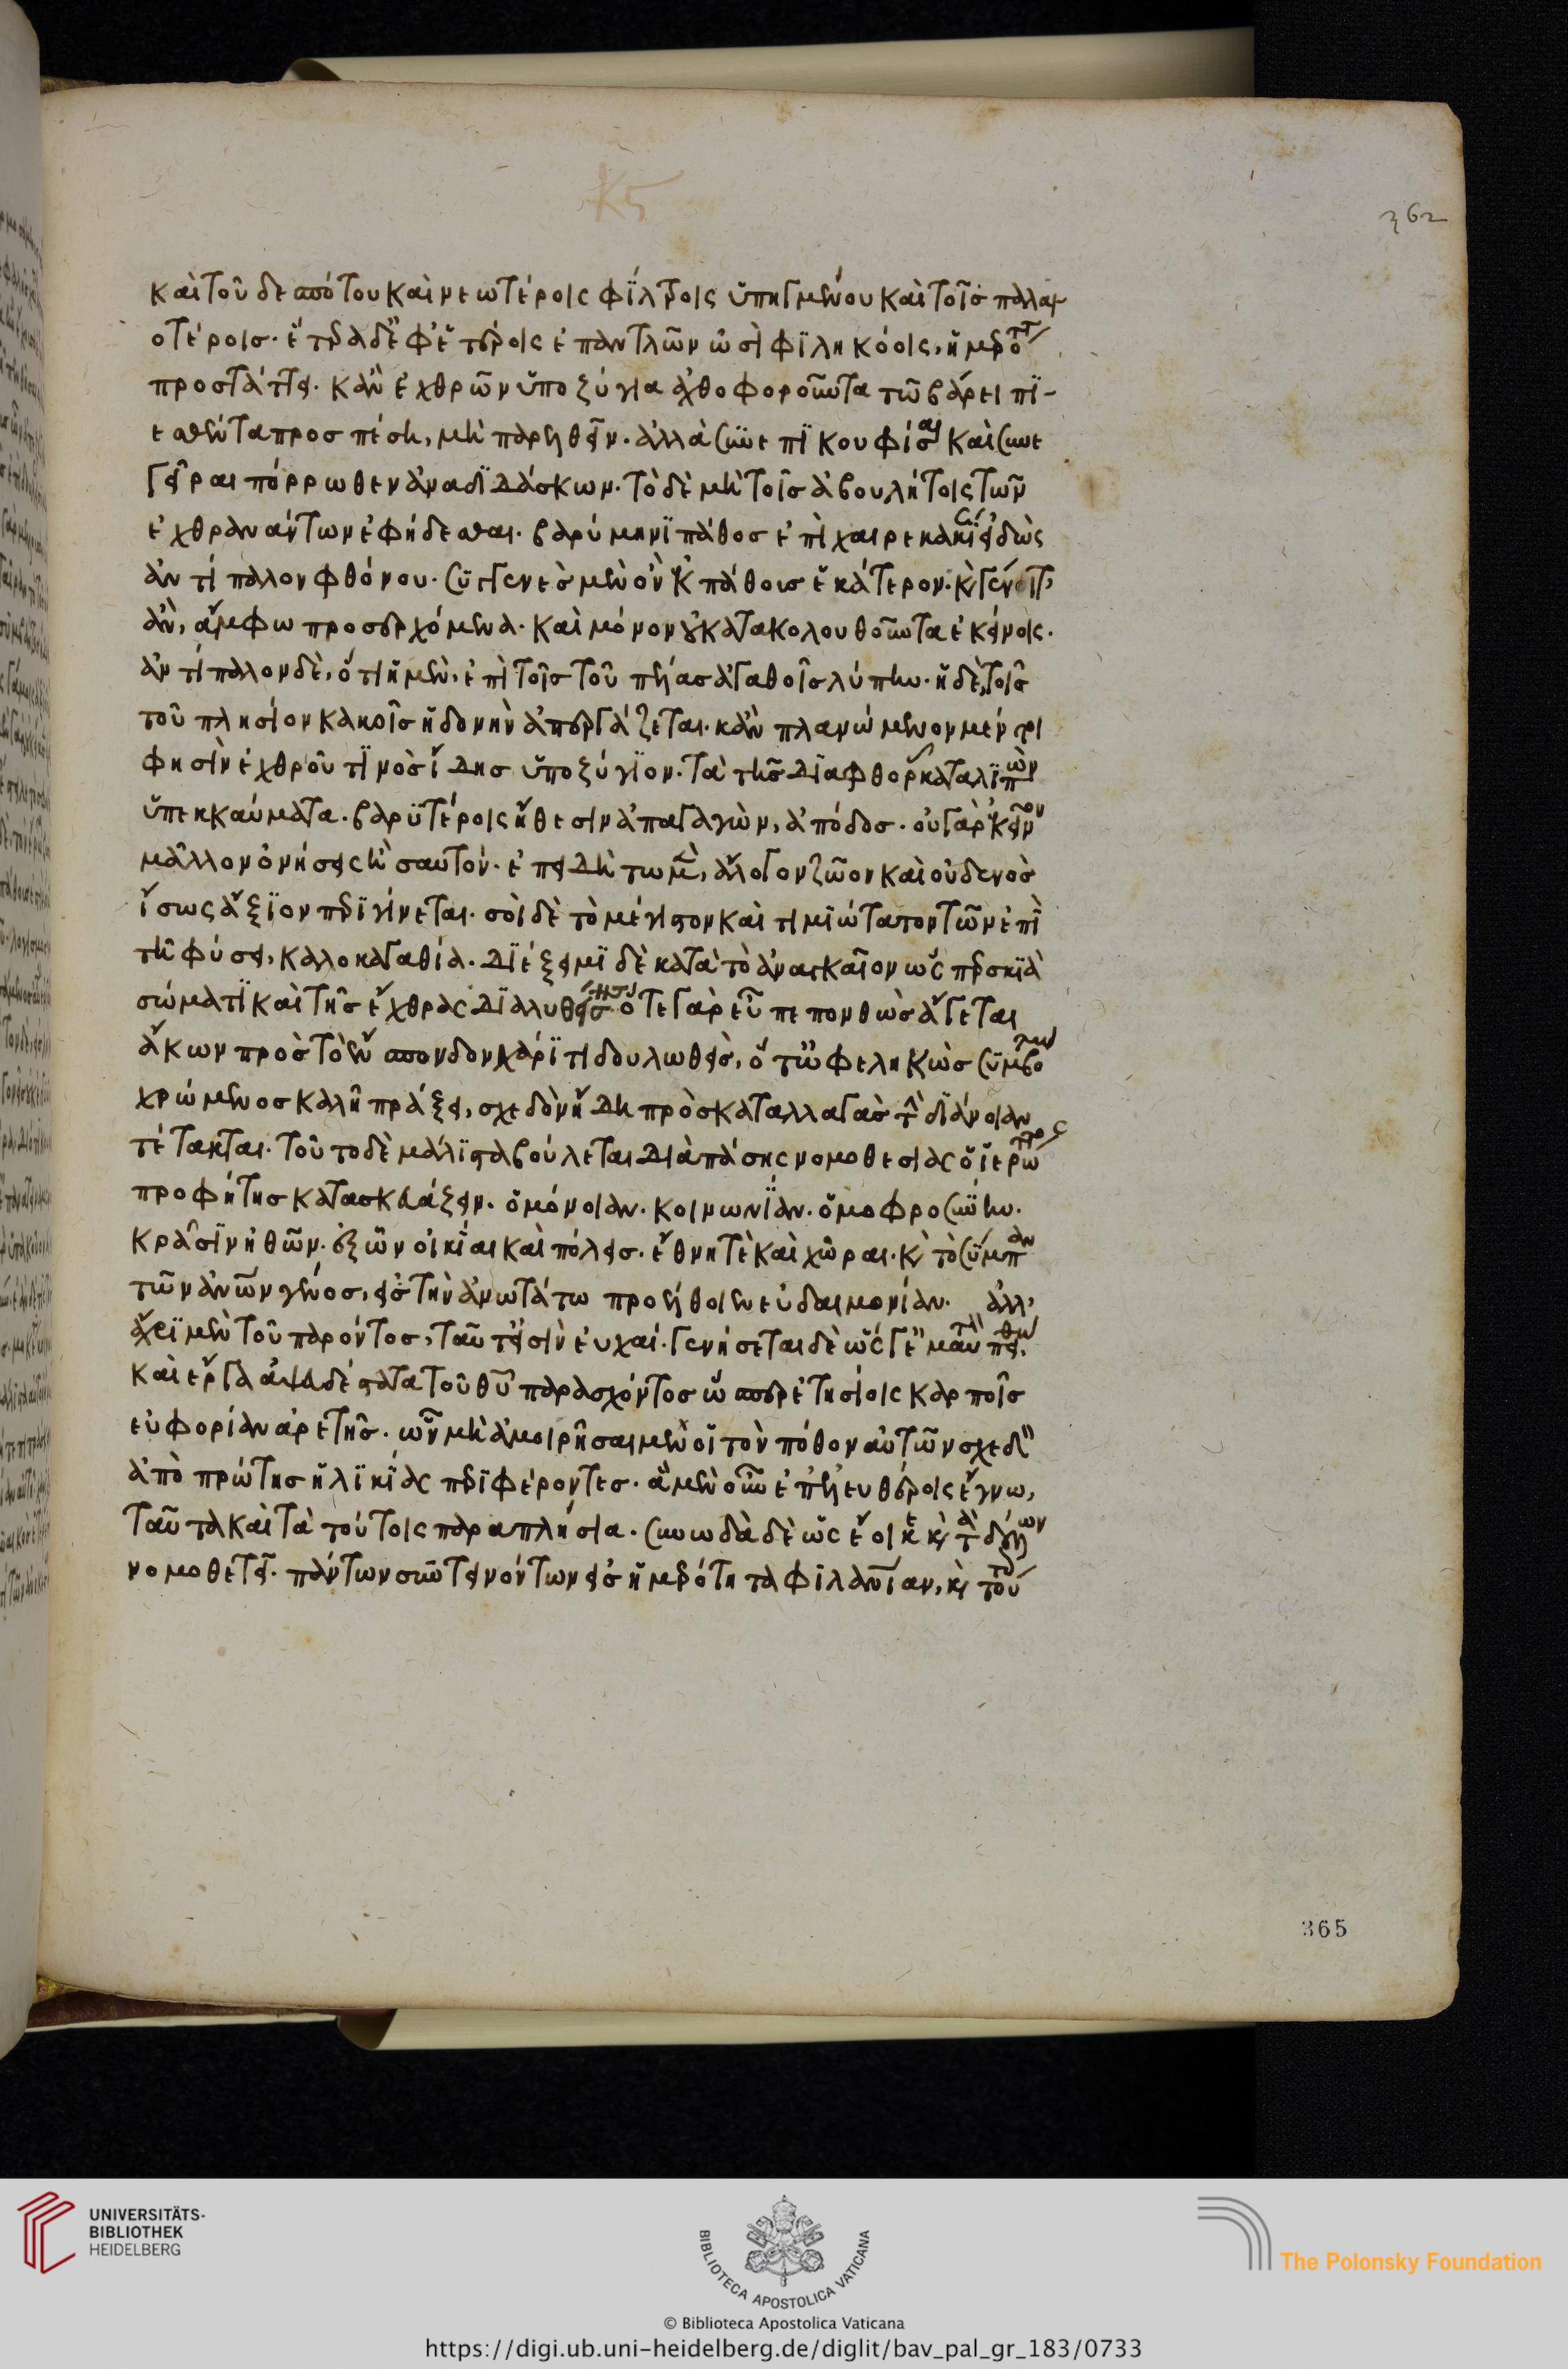 κϛ
362
καὶ τοῦ δεσπότου καὶ νεωτέροις φίλτροις ὑπηγμένου καὶ τοῖς παλαι-
οτέροις. ἕτερα δὲ ἐφ' ἑτέροις ἐπαντλῶν ὠσὶ φιληκόοις, ἡμερότητα
προστάττει. κἂν ἐχθρῶν ὑποζύγια ἀχθοφοροῦντα τῷ βάρει πι-
εσθέντα προσπέση, μὴ παρελθεῖν. ἀλλὰ συνεπικουφίσαι καὶ συνε
γεῖραι πόρρωθεν ἀναδιδάσκων. τὸ δὲ μὴ τοῖς ἀβουλήτοις τῶν
ἐχθρανάντων ἐφήδεσθαι. βαρύμηνι πάθος ἐπιχαιρεκακίας εἰδὼς
ἀντίπαλον φθόνου. συγγενὲς μὲν οὖν κ πάθοις ἑκάτερον. κ γένοιτ'
ἂν, ἄμφω προσερχόμενα. καὶ μόνον οὐκ ἀκολουθοῦντα ἐκείνοις.
ἀντίπαλον δὲ, ὅτι ἡ μὲν, ἐπὶ τοῖς τοῦ πέλας ἀγαθοῖς λύπην. ἡ δὲ, τοῖς
τοῦ πλησίον κακοῖς ἡδονὴν ἀπεργάζεται. κἂν πλανώμενον μέντοι
φησὶν ἐχθροῦ τινὸς ἴδης ὑποζύγιον. τὰ τῆς διαφθορᾶς καταλιπὼν
ὑπεκκαύματα. βαρυτέροις ἤθεσιν ἀπαγαγὼν, ἀπόδος. οὐ γὰρ ἐκεῖνον
μᾶλλον ὀνήσεις ἢ σαυτόν. ἐπειδὴ τῷ μὲν, ἄλογον ζῶον καὶ οὐδενὸς
ἴσως ἄξιον περιγίνεται. σοὶ δὲ τὸ μέγιστον καὶ τιμιώτατον τῶν ἐπὶ
τῆ φύσει, καλοκαγαθία. διέξειμι δὲ κατὰ τὸ ἀναγκαῖον ὡς περ σκιὰ
σώματι καὶ τῆς ἔχθρας διαλυθείσης. ὅ τε γὰρ εὖ πεπονθὼς ἄγεται
ἄκων πρὸς τὸ ἔνσπονδον χάριτι δουλωθεὶς, ὅ τ' ὠφεληκὼς συμβούλω
χρώμενος καλῆ πράξει, σχεδὸν ἤδη πρὸς καταλλαγὰς τὴν διάνοιαν
τέτακται. τοῦτο δὲ μάλιστα βούλεται διὰ πάσης νομοθεσίας ὁ ἱερώτατος
προφήτης κατασκευάζειν. ὁμόνοιαν. κοινωνίαν. ὁμοφροσύνην.
κρᾶσιν ἠθῶν. ἐξ ὧν οἰκίαι καὶ πόλεις. ἔθνη τὲ καὶ χῶραι. κ τὸ σύμπαν
τῶν ἀνων γένος, εἰς τὴν ἀνωτάτω προέλθοι ἂν εὐδαιμονίαν. ἀλλ'
ἄχρι μὲν τοῦ παρόντος, ταῦτ' εἰσὶν εὐχαί. γενήσεται δὲ ὥς γε ἐμαυτὸν πείθω
καὶ ἔργα ἀψευδέστατα τοῦ θυ παρασχόντος ὥσπερ ἐτησίοις καρποῖς
εὐφορίαν ἀρετῆς. ὧν μὴ ἀμοιρῆσαιμεν οἱ τὸν πόθον αὐτῶν σχεδὸν
ἀπὸ πρώτης ἡλικίας περιφέροντες. ἃ μὲν οὖν ἐπ' ἐλευθέροις ἔγνω,
ταῦτα καὶ τὰ τούτοις παραπλήσια. συνωδὰ δὲ ὡς ἔοικε κ τὰ δούλων
νομοθετεῖ. πάντων συντεινόντων εἰς ἡμερότητα φιλανιαν, κ τούτ
365
UNIVERSITÄTS-
BIBLIOTHEK
HEIDELBERG
BIBLIOTECA APOSTOLICA VATICANA
The Polonsky Foundation
© Biblioteca Apostolica Vaticana
https://digi.ub.uni-heidelberg.de/diglit/bav_pal_gr_183/0733